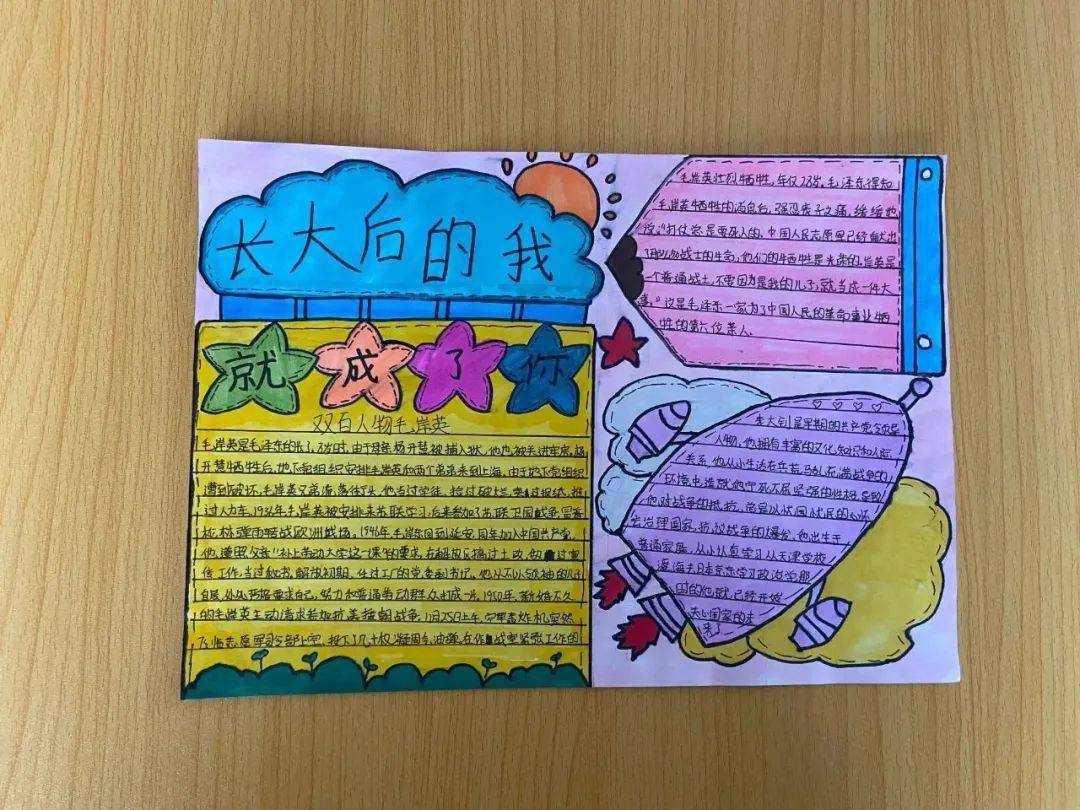 长大后的我
就成了你
双百人物毛岸英
毛岸英是毛泽东的长子,8岁时,由于母亲杨开慧被捕入狱,他也被关进牢房,杨
开慧牺牲后,地下党组织安排毛岸英和两个弟弟来到上海,由于地下党组织
遭到破坏,毛岸英兄弟流落街头,他当过学徒,捡过破烂,卖过报纸,推
过人力车,1936年毛岸英被安排来苏联学习,后来参加了苏联卫国战争,冒着
枪林弹雨转战欧洲战场,1946年毛岸英回到延安,同年加入中国共产党,
他遵照父亲"补上劳动大学这一课"的要求,在解放区搞过土改,做过宣
传工作,当过秘书,解放初期,任过工厂的党委副书记,他从不以领袖的儿子
自居,处处严格要求自己,努力和普通劳动群众打成一片,1950年,新婚不久
的毛岸英主动请求参加抗美援朝战争,11月25日上午,中军轰炸机突然
飞临志愿军司令部上空,投下了几十枚凝固汽油弹,在作战室紧张工作的
毛岸英壮烈牺牲,年仅28岁。毛泽东得知
毛岸英牺牲的消息后,强忍丧子之痛,缓缓地
说:"打仗总是要死人的,中国人民志愿军已经献出
了那么多战士的生命,他们的牺牲是光荣的,岸英是
一个普通战士,不要因为是我的儿子,就当成一件大
事。"这是毛泽东一家为了中国人民的革命事业牺
牲的第六位亲人.
李大钊是早期的共产党领导
人物,他拥有丰富的文化知识和人际
关系,他从小生活在兵荒马乱充满战争的
环境中造就他宁死不屈坚强的性格,导致
他对战争的抵抗,总是以忧国忧民的心怀
去治理国家,抗议战争的爆发,他出生于
普通家庭,从小认真学习从天津学校
漂海去日本东京学习政治学,那
时的他就已经开始
关心国家的未
来了